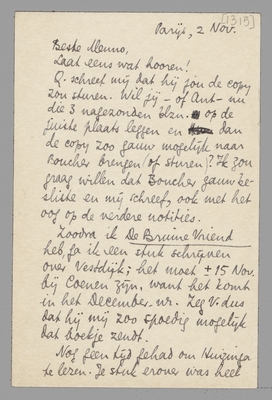 [1315]
Parijs, 2 Nov.
Beste Menno,
Laat eens wat hooren!
Q. schreef mij dat hij jou de copy
zou sturen. Wil jij – of Ant – nu
die 3 nagezonden blzn. op de
juiste plaats leggen en dan
de copy zoo gauw mogelijk naar
Boucher brengen (of sturen)? Ik zou
graag willen dat Boucher gauw be-
sliste en mij schreef, ook met het
oog op de verdere notities.
Zoodra ik De Bruine Vriend
heb ga ik een stuk schrijven
over Vestdijk; het moet ± 15 Nov.
bij Coenen zijn, want het komt
in het December-nr. Zeg V. dus
dat hij mij zoo spoedig mogelijk
dat boekje zendt.
Nog geen tijd gehad om Huizinga
te lezen. Je stuk erover was heel